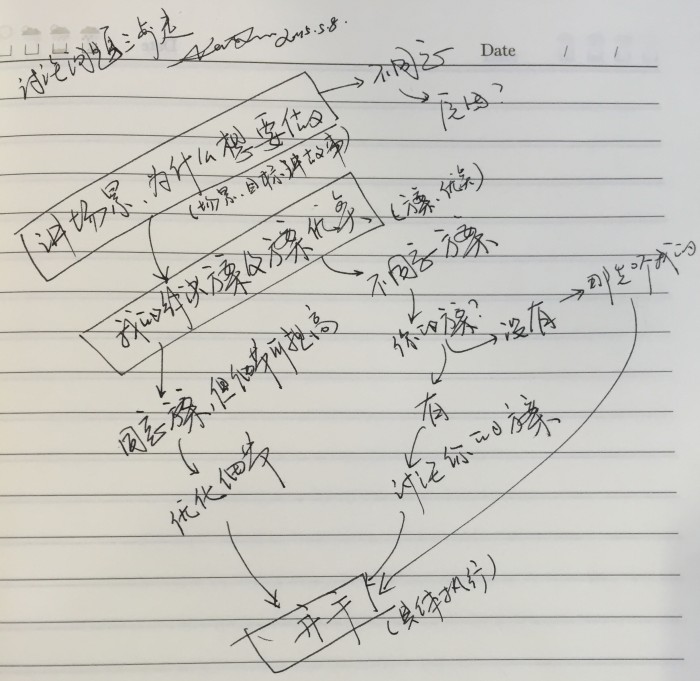 讨论问题三步走
2015.5.8.
Date / /
不同意
原因?
讲场景、为什么想要做
(场景、目标、讲故事)
我的解决方案及方案优点
(方案、优点)
不同意方案
你的方案?
没有
那先听我的
有
讨论你的方案
同意方案,但细节可提高
优化细节
开干
(具体执行)